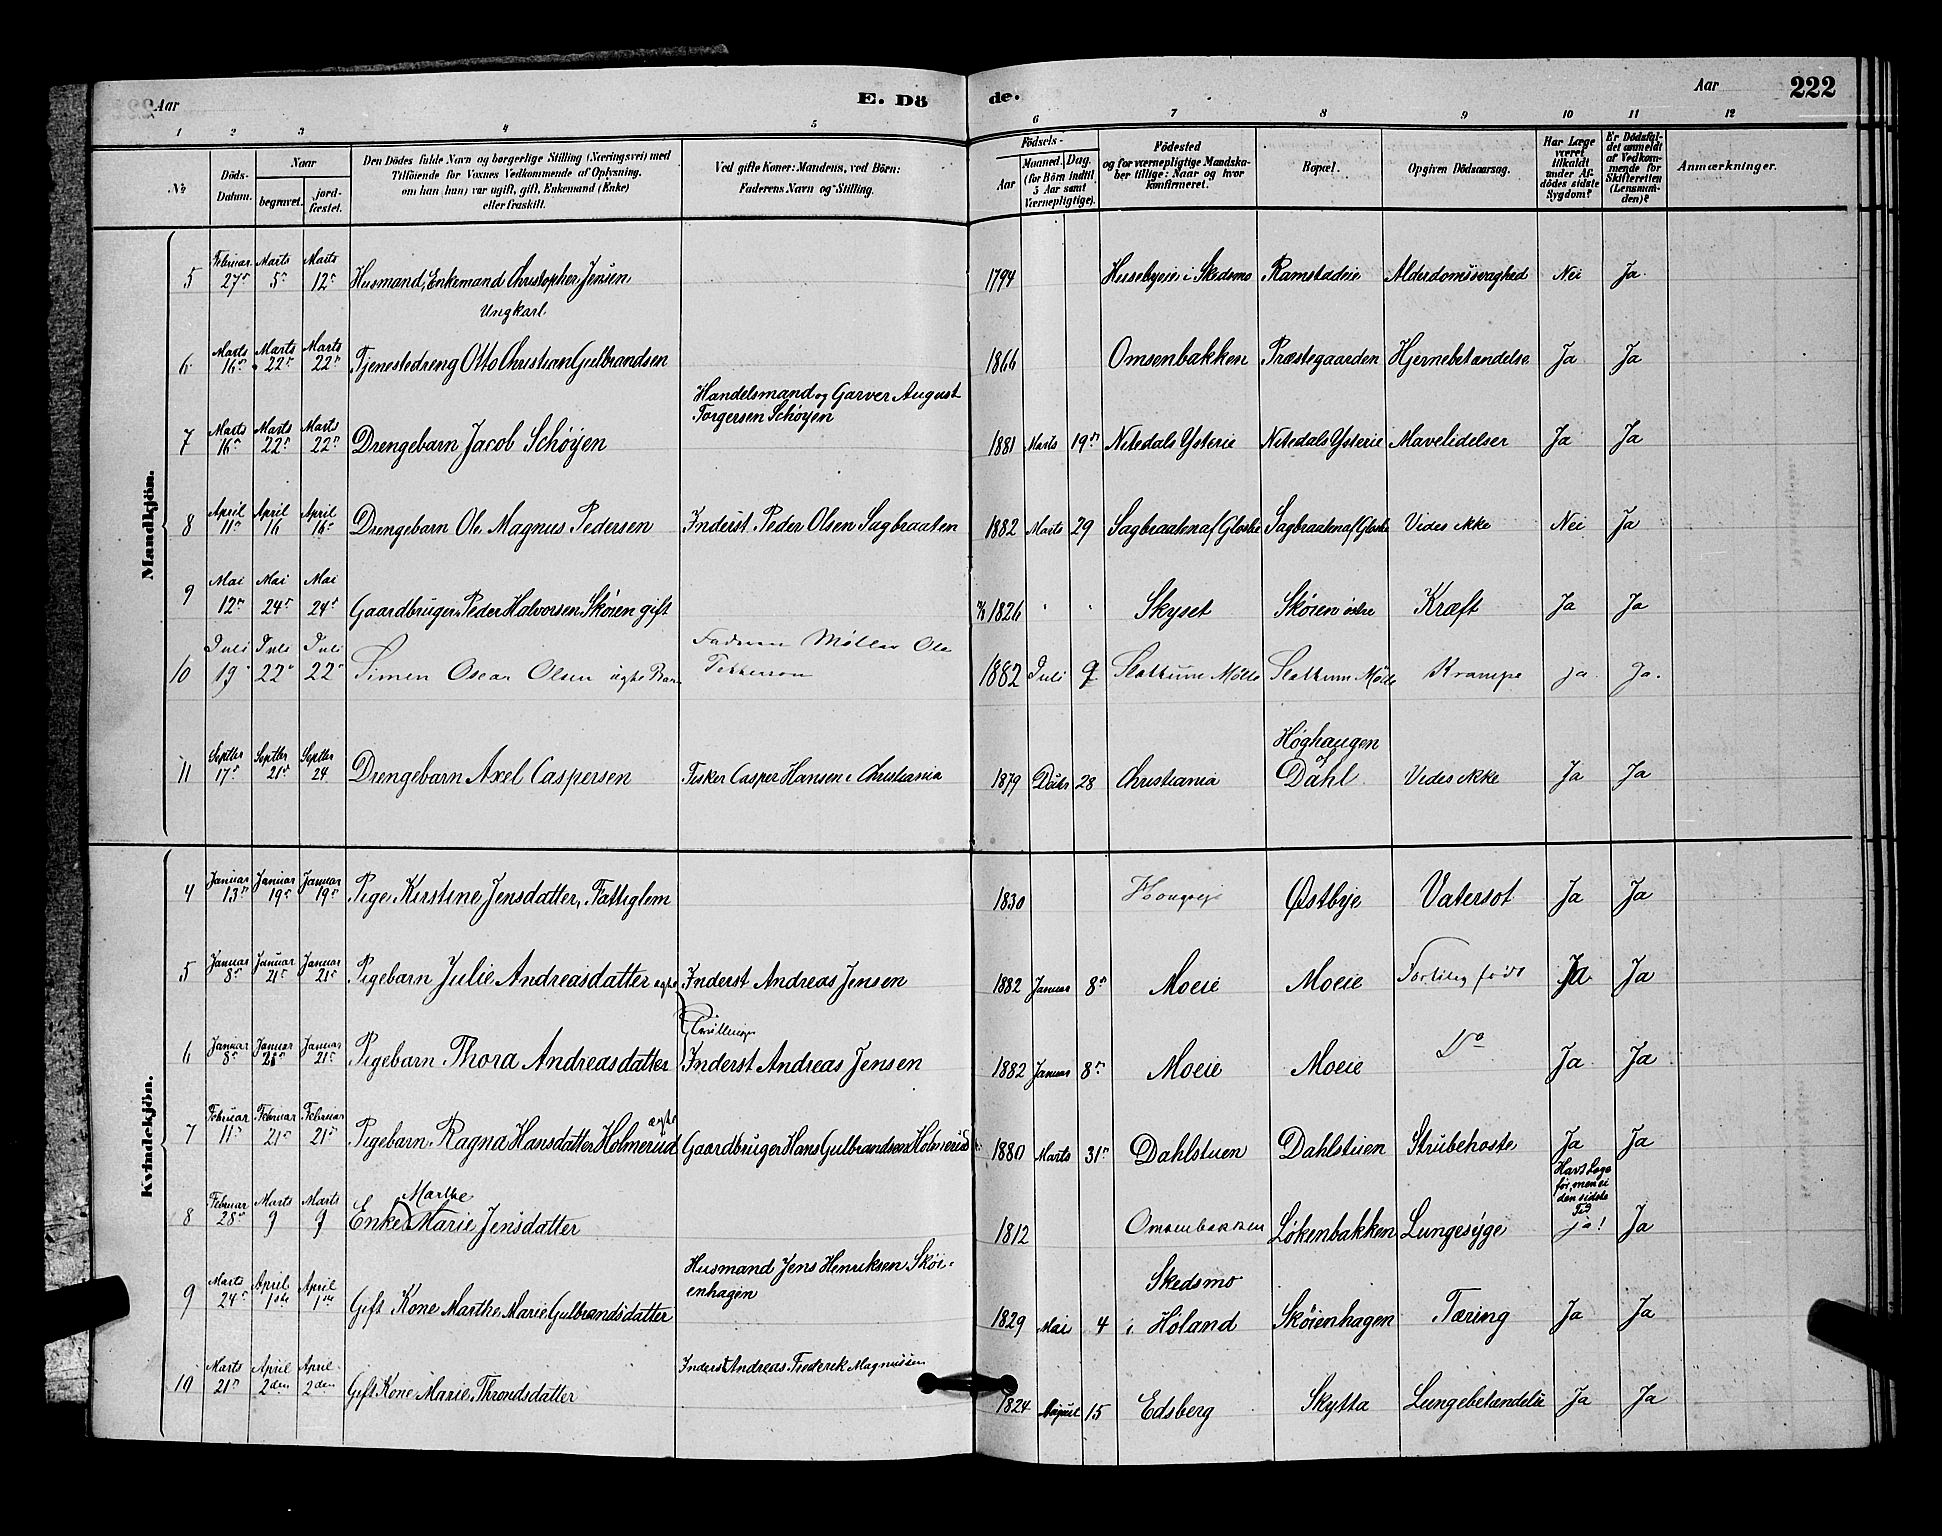 Aar E. Dö de. Aar 222
1 2 3 4 5 6 7 8 9 10 11 12
No
Döds-Datum.
Naar
begravet.
jord-fæstet.
Den Dödes fulde Navn og borgerlige Stilling (Næringsvei) med
Tilföiende for Voxnes Vedkommende af Oplysning,
om han (hun) var ugift, gift, Enkemand (Enke)
eller fraskilt.
Ved gifte Koner: Mandens, ved Börn:
Faderens Navn og Stilling.
Födsels-
Aar
Maaned. Dag.
(for Börn indtil
5 Aar samt
Værnepligtige).
Födested
og for værnepligtige Mandska-
ber tillige: Naar og hvor
konfirmeret.
Bopæl.
Opgiven Dödsaarsag.
Har Læge
været
tilkaldt
under Af-
dödes sidste
Sygdom?
Er Dödsfal-
det anmeldt
af Vedkom-
mende for
Skifteretten
(Lensman-
den)?
Anmærkninger.
Mandkjön.
5 Februar 27de Marts 5de Marts 12te Husmand, Enkemand Christopher Jensen 1794 Husebyeie i Skedsmo Ramstadeie Alderdomssvaghed Nei Ja
Ungkarl
6 Marts 16de Marts 22de Marts 22de Tjenestedreng Otto Christian Gulbrandsen 1866 Omsenbakken Præstegaarden Hjernebetændelse Ja Ja
Handelsmand og Garver August
Torgersen Schøyen
7 Marts 16de Marts 22de Marts 22de Drengebarn Jacob Schøyen 1881 Marts 19de Nitedals Ysterie Nitedals Ysterie Mavelidelser Ja Ja
8 April 11te April 16 April 16de Drengebarn Ole Magnus Pedersen Inderst Peder Olsen Sagbraaten 1882 Marts 29 Sagbraaten af Glosli Sagbraaten af Glosli Vides ikke Nei Ja
9 Mai 12te Mai 24de Mai 24de Gaardbruger Peder Halvorsen Skøien gift 1826 Skyset Skøien østre Kræft Ja Ja
10 Juli 19 Juli 22 Juli 22 Simen Oscar Olsen ægte Barn Faderen Møller Ole
1882 Juli 9 Slattum Mølle Slattum Mølle Krampe ja Ja.
11 Septbr 17de Septbr 21de Septbr 24 Drengebarn Axel Caspersen Fisker Casper Hansen i Christiania 1879 28 Christiania Høghaugen
af
Dahl Vides ikke Ja Ja
Kvindekjön.
4 Januar 13de Januar 19de Januar 19de Pige Kirstine Jensdatter, Fattiglem 1830 Østbye Vatersot Ja Ja
5 Januar 8de Januar 21de Januar 21de Pigebarn Julie Andreasdatter ægte Inderst Andreas Jensen 1882 Januar 8de Moeie Moeie Fortidlig født Ja Ja
Tvillinger
6 Januar 8de Januar 21de Januar 21de Pigebarn Thora Andreasdatter Inderst Andreas Jensen 1882 Januar 8de Moeie Moeie Do Ja Ja
7 Februar 11te Februar 21de Februar 21de Pigebarn Ragna Hansdatter Holmerud ægte Gaardbruger Hans Gulbrandsen Holmerud 1880 Marts 31te Dahlstuen Dahlstuen Strubehoste Ja Ja
8 Februar 28de Marts 9 Marts 9 Enke Marthe Marie Jensdatter 1812 Omsenbakken Løkenbakken Lungesyge Havt Læge
før, men ei
den sidste
Tid
ja! Ja
Husmand Jens Henriksen Skøi-
enhagen
9 Marts 24de April 1ste April 1ste Gift Kone Marthe Marie Gulbrandsdatter 1829 Mai 4 Skedsmo
i Høland Skøienhagen Tæring Ja Ja
Inderst Andreas Frederik Magnussen
10 Marts 21de April 2den April 2den Gift Kone Marie Throndsdatter 1824 August 15 Edsberg Skytta Lungebetændelse Ja Ja